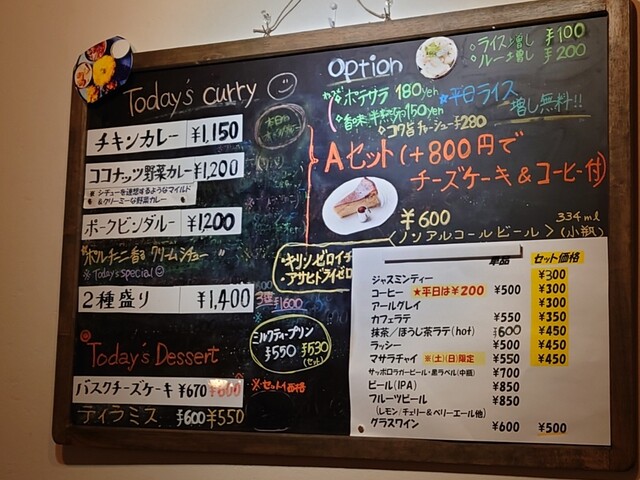 Today's curry
チキンカレー ¥1,150
ココナッツ野菜カレー ¥1,200
※シチューを連想するようなマイルド
&クリーミーな野菜カレー
ポークビンダルー ¥1200
"ポルチーニ香る クリームシチュー"
※Today's special
2種盛り ¥1,400
3種 ¥1600
Today's Dessert
バスクチーズケーキ ¥670 ¥600
ティラミス ¥600 ¥550
※セット価格
ミルクティープリン
¥550 ¥530
(セット)
Option
ライス増し ¥100
ルー増し ¥200
ポテサラ 180yen
150yen
¥280
★平日ライス
増し無料!!
Aセット(+800円で
チーズケーキ&コーヒー付)
¥600
〈ノンアルコールビール〉
334ml
(小瓶)
・キリンゼロイチ
・アサヒドライゼロ
単品 セット価格
ジャスミンティー ¥300
コーヒー ★平日は¥200 ¥500 ¥300
アールグレイ ¥300
カフェラテ ¥550 ¥350
抹茶/ほうじ茶ラテ(hot) ¥600 ¥450
ラッシー ¥500 ¥450
マサラチャイ ※(土)(日)限定 ¥550 ¥450
サッポロラガービール・黒ラベル(中瓶) ¥700
ビール(IPA) ¥850
フルーツビール ¥850
(レモン/チェリー&ベリーエール他)
グラスワイン ¥600 ¥500